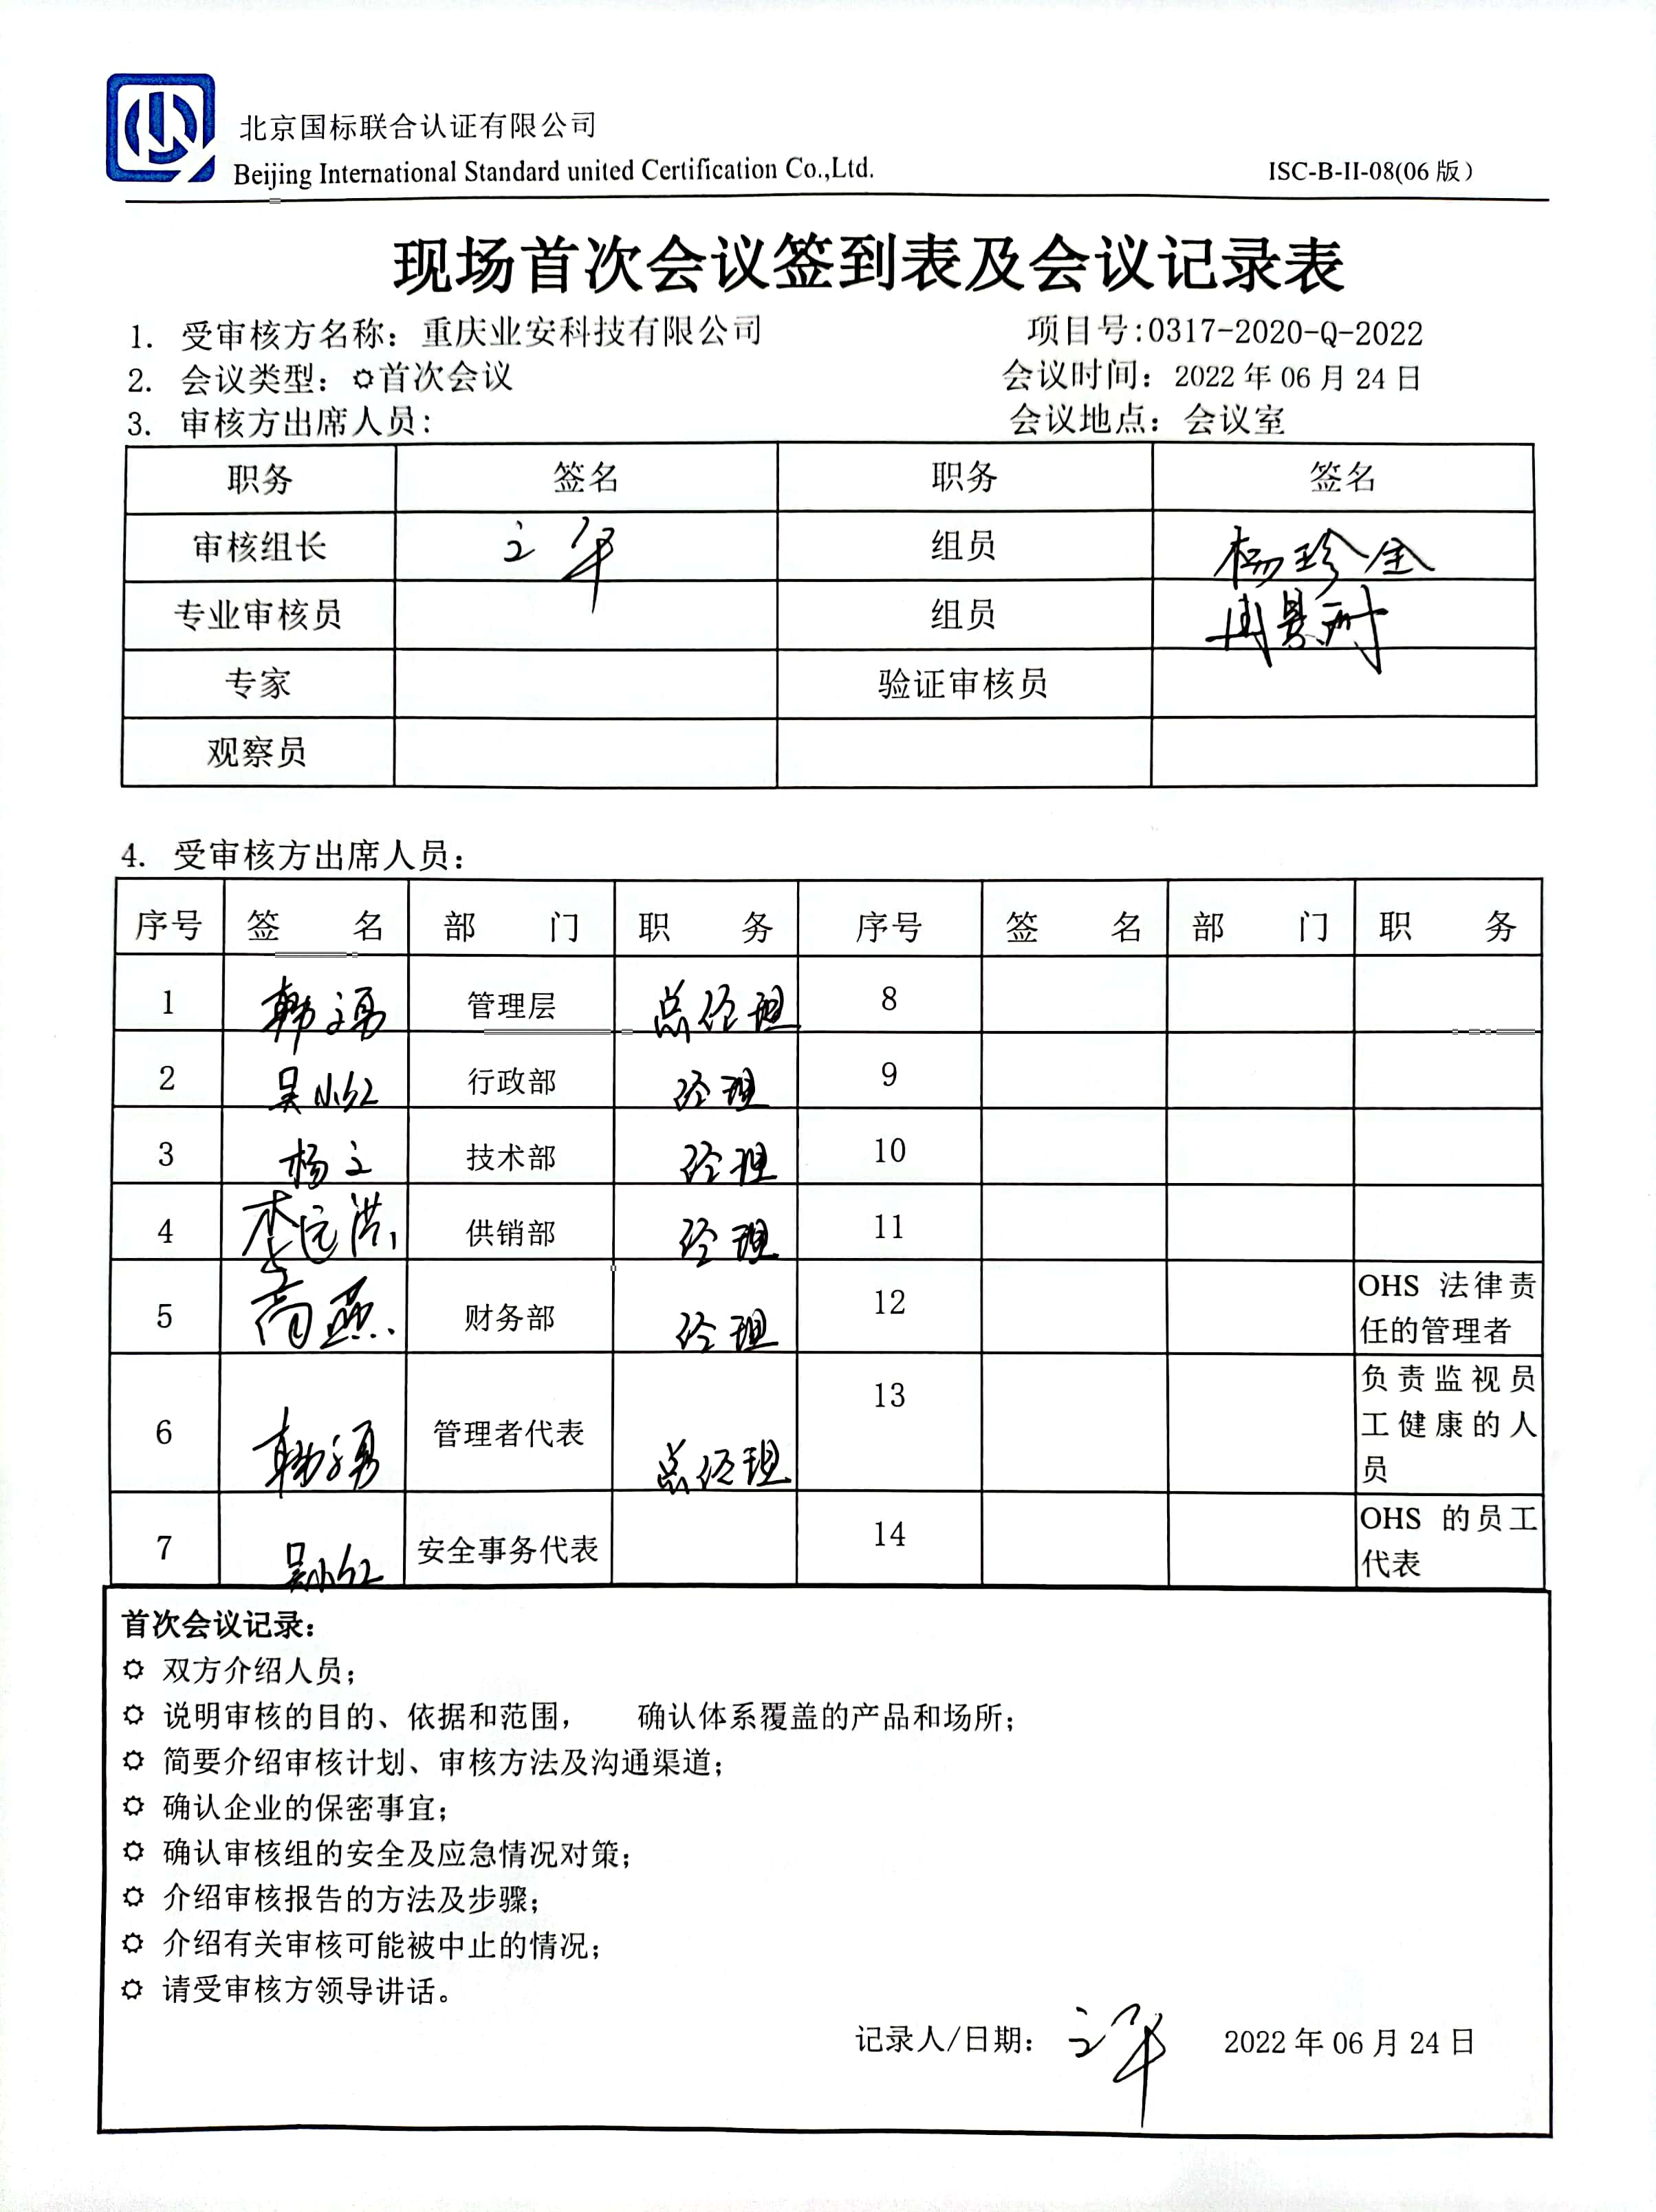 北京国标联合认证有限公司
Beijing International Standard united Certification Co.,Ltd.
ISC-B-II-08(06 版)
现场首次会议签到表及会议记录表
1. 受审核方名称：重庆业安科技有限公司 项目号:0317-2020-Q-2022
2. 会议类型：首次会议 会议时间：2022 年 06 月 24 日
3. 审核方出席人员： 会议地点：会议室
职务 签名 职务 签名
审核组长 组员 杨珍全
专业审核员 组员
专家 验证审核员
观察员
4. 受审核方出席人员：
序号 签 名 部 门 职 务 序号 签 名 部 门 职 务
1 韩文勇 管理层 总经理 8
2 吴小红 行政部 经理 9
3 杨文 技术部 经理 10
4 李远洪 供销部 经理 11
5 高燕 财务部 经理 12 OHS 法律责
任的管理者
6 韩文勇 管理者代表 总经理 13 负责监视员
工健康的人
员
7 吴小红 安全事务代表 14 OHS 的员工
代表
首次会议记录：
双方介绍人员；
说明审核的目的、依据和范围， 确认体系覆盖的产品和场所；
简要介绍审核计划、审核方法及沟通渠道；
确认企业的保密事宜；
确认审核组的安全及应急情况对策；
介绍审核报告的方法及步骤；
介绍有关审核可能被中止的情况；
请受审核方领导讲话。
记录人/日期： 2022 年 06 月 24 日